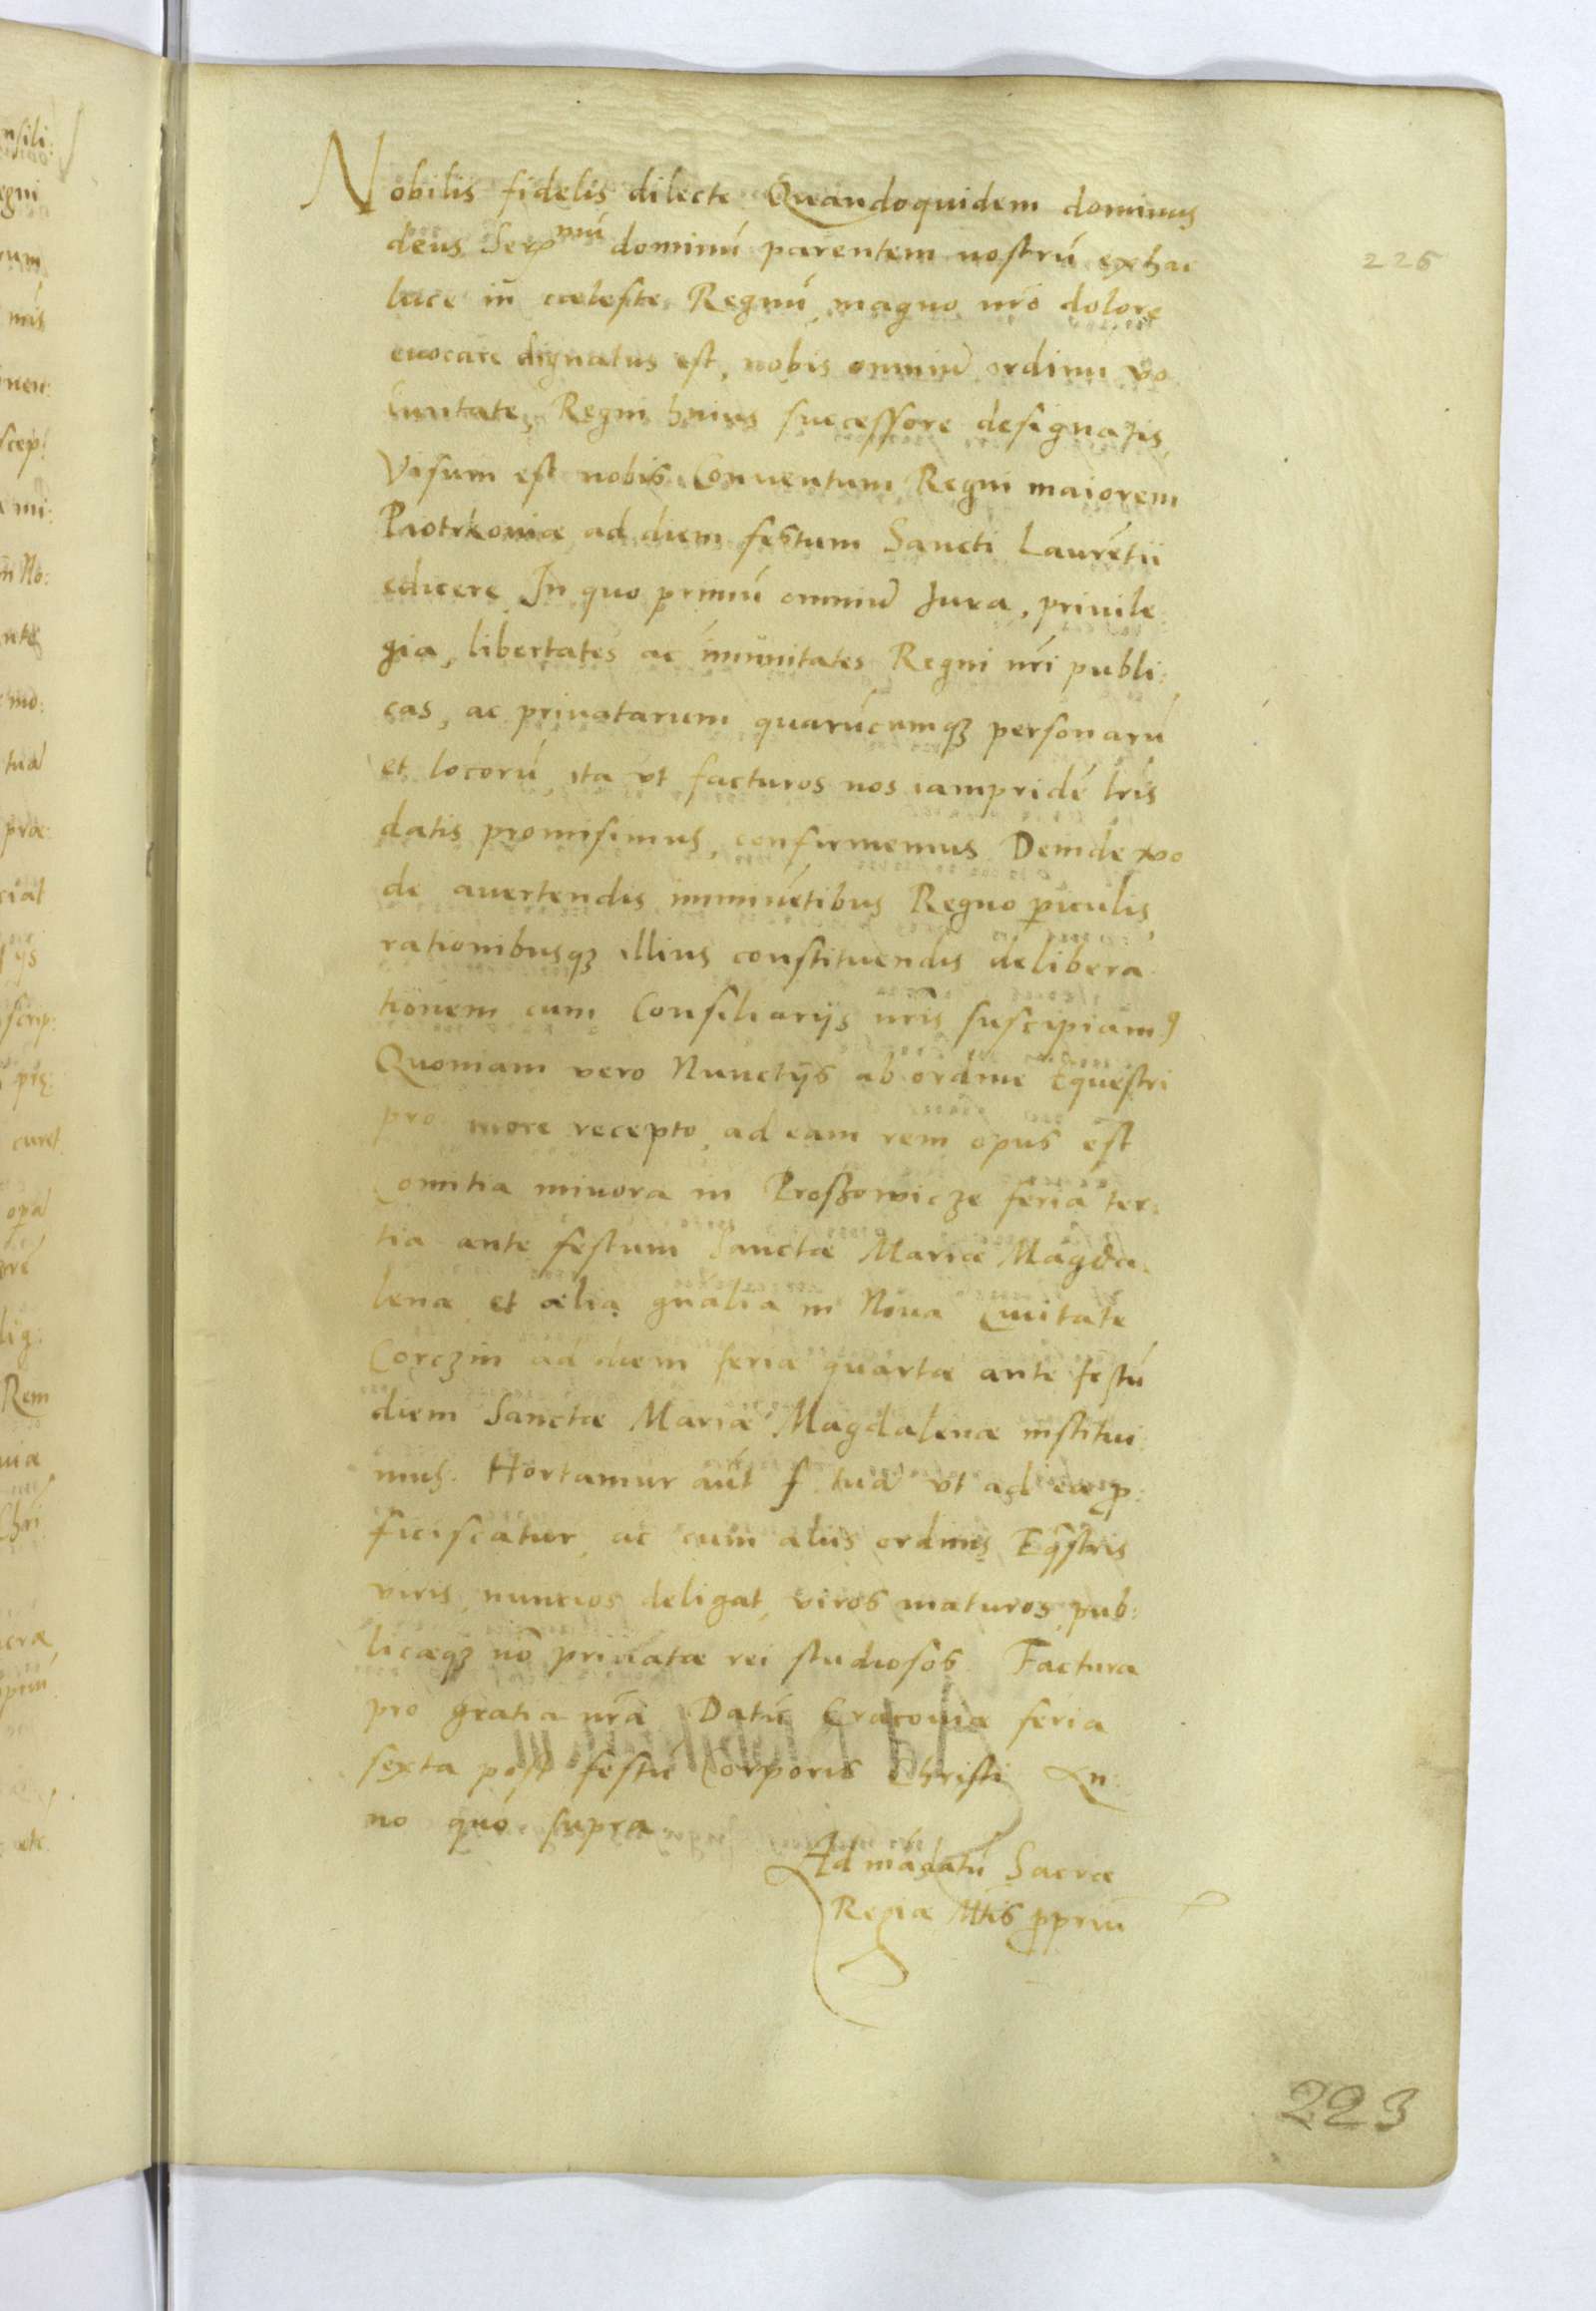 Nobilis fidelis dilecte Quandoquidem dominus
deus Ser^mũ dominũ parentem nostrũ ex hac
luce in cæleste Regnũ magno nr̃o dolore
euocare dignatus est, nobis omniũ ordinũ vo
luntate, Regni huius successore designatis,
Visum est nobis Conuentum Regni maiorem
Piotrkouiæ ad diem festum Sancti Laurẽtii
edicere In quo primũ omniũ Jura, priuile
gia, libertates ac im̃unitates Regni nr̃i publi:
cas, ac priuatarum quarũcumqȝ personarũ
et locorũ ita vt facturos nos iampridẽ lr̃is
datis promisimus, confirmemus Deinde vo
de auertendis imminẽtibus Regno piculis,
rationibusqȝ illius constituendis delibera
tionem cum Consiliarijs nr̃is suscipiam9
Quoniam vero Nunctijs ab ordine Equestri
pro more recepto ad eam rem opus est
Comitia minora in Proszowicze feria ter:
tia ante festum Sanctæ Mariæ Magda:
lenæ et alia gñalia in Noua Ciuitate
Corczin ad diem feriæ quartæ ante festũ
diem Sanctæ Mariæ Magdalenæ institui:
mus. Hortamur aũt f tuã vt ad ea p:
ficiscatur, ac cum aliis ordinis Eq̃stris
viris nuncios deligat, viros maturos pub:
licæqȝ nõ priuatæ rei studiosos Factura
pro gratia nr̃a Datũ Cracouiæ feria
sexta post festũ Corporis Christi An:
no quo supra
Ad mãdatũ Sacræ
Regiæ Mtis ppriũ
226
223